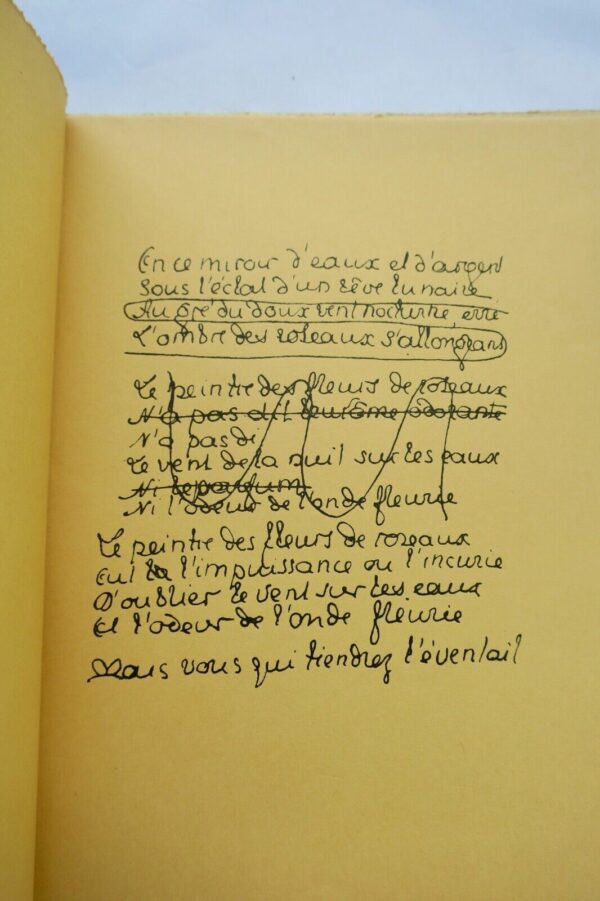 En ce miroir d'eaux et d'argent
Sous l'éclat d'un rêve lunaire
Au gré du doux vent nocturne erre
L'ombre des roseaux s'allongeant
Le peintre des fleurs de roseaux
N'a pas dit leur âme odorante
N'a pas di
Le vent de la nuit sur les eaux
Ni le parfum
Ni l'odeur de l'onde fleurie
Le peintre des fleurs de roseaux
Eut la l'impuissance ou l'incurie
D'oublier le vent sur les eaux
Et l'odeur de l'onde fleurie
Mais vous qui tiendrez l'éventail